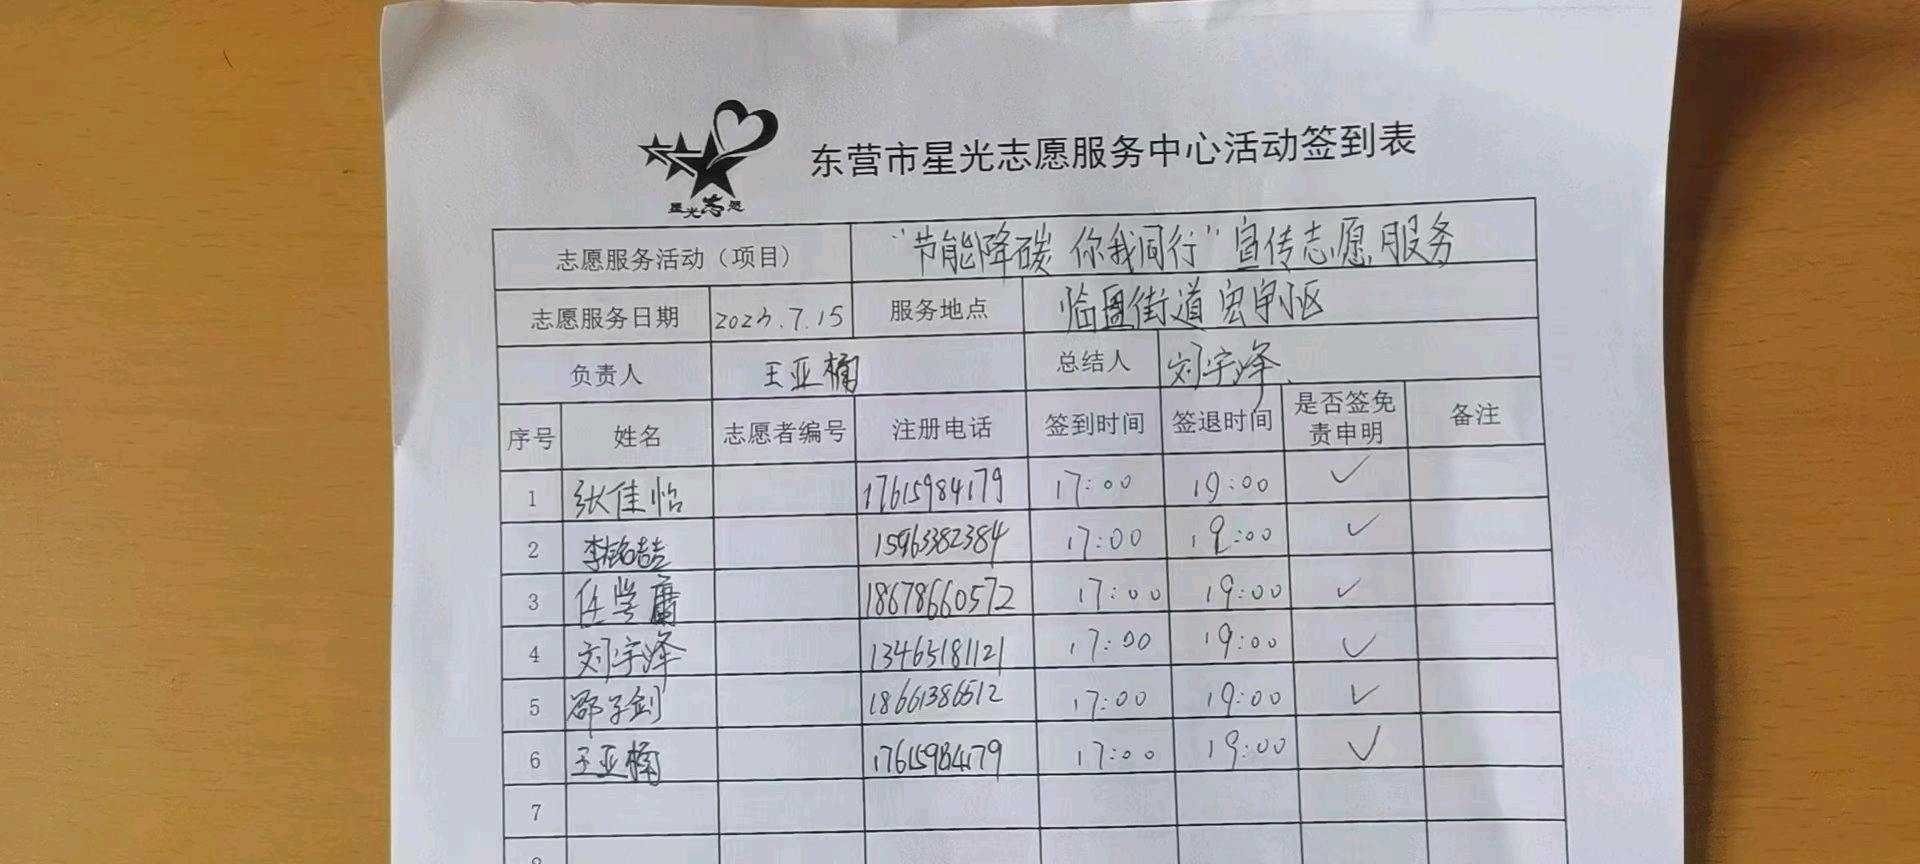 星光志愿
东营市星光志愿服务中心活动签到表
志愿服务活动（项目） “节能降碳 你我同行”宣传志愿服务
志愿服务日期 2023.7.15 服务地点 临盘街道 宏申小区
负责人 王亚楠 总结人 刘宇泽
序号 姓名 志愿者编号 注册电话 签到时间 签退时间 是否签免责申明 备注
1 张佳怡 17615984179 17:00 19:00 ✓
2 李铭喆 15963382384 17:00 19:00 ✓
3 任学庸 18678660572 17:00 19:00 ✓
4 刘宇泽 13465181121 17:00 19:00 ✓
5 邵子剑 18661386512 17:00 19:00 ✓
6 王亚楠 17615984179 17:00 19:00 ✓
7